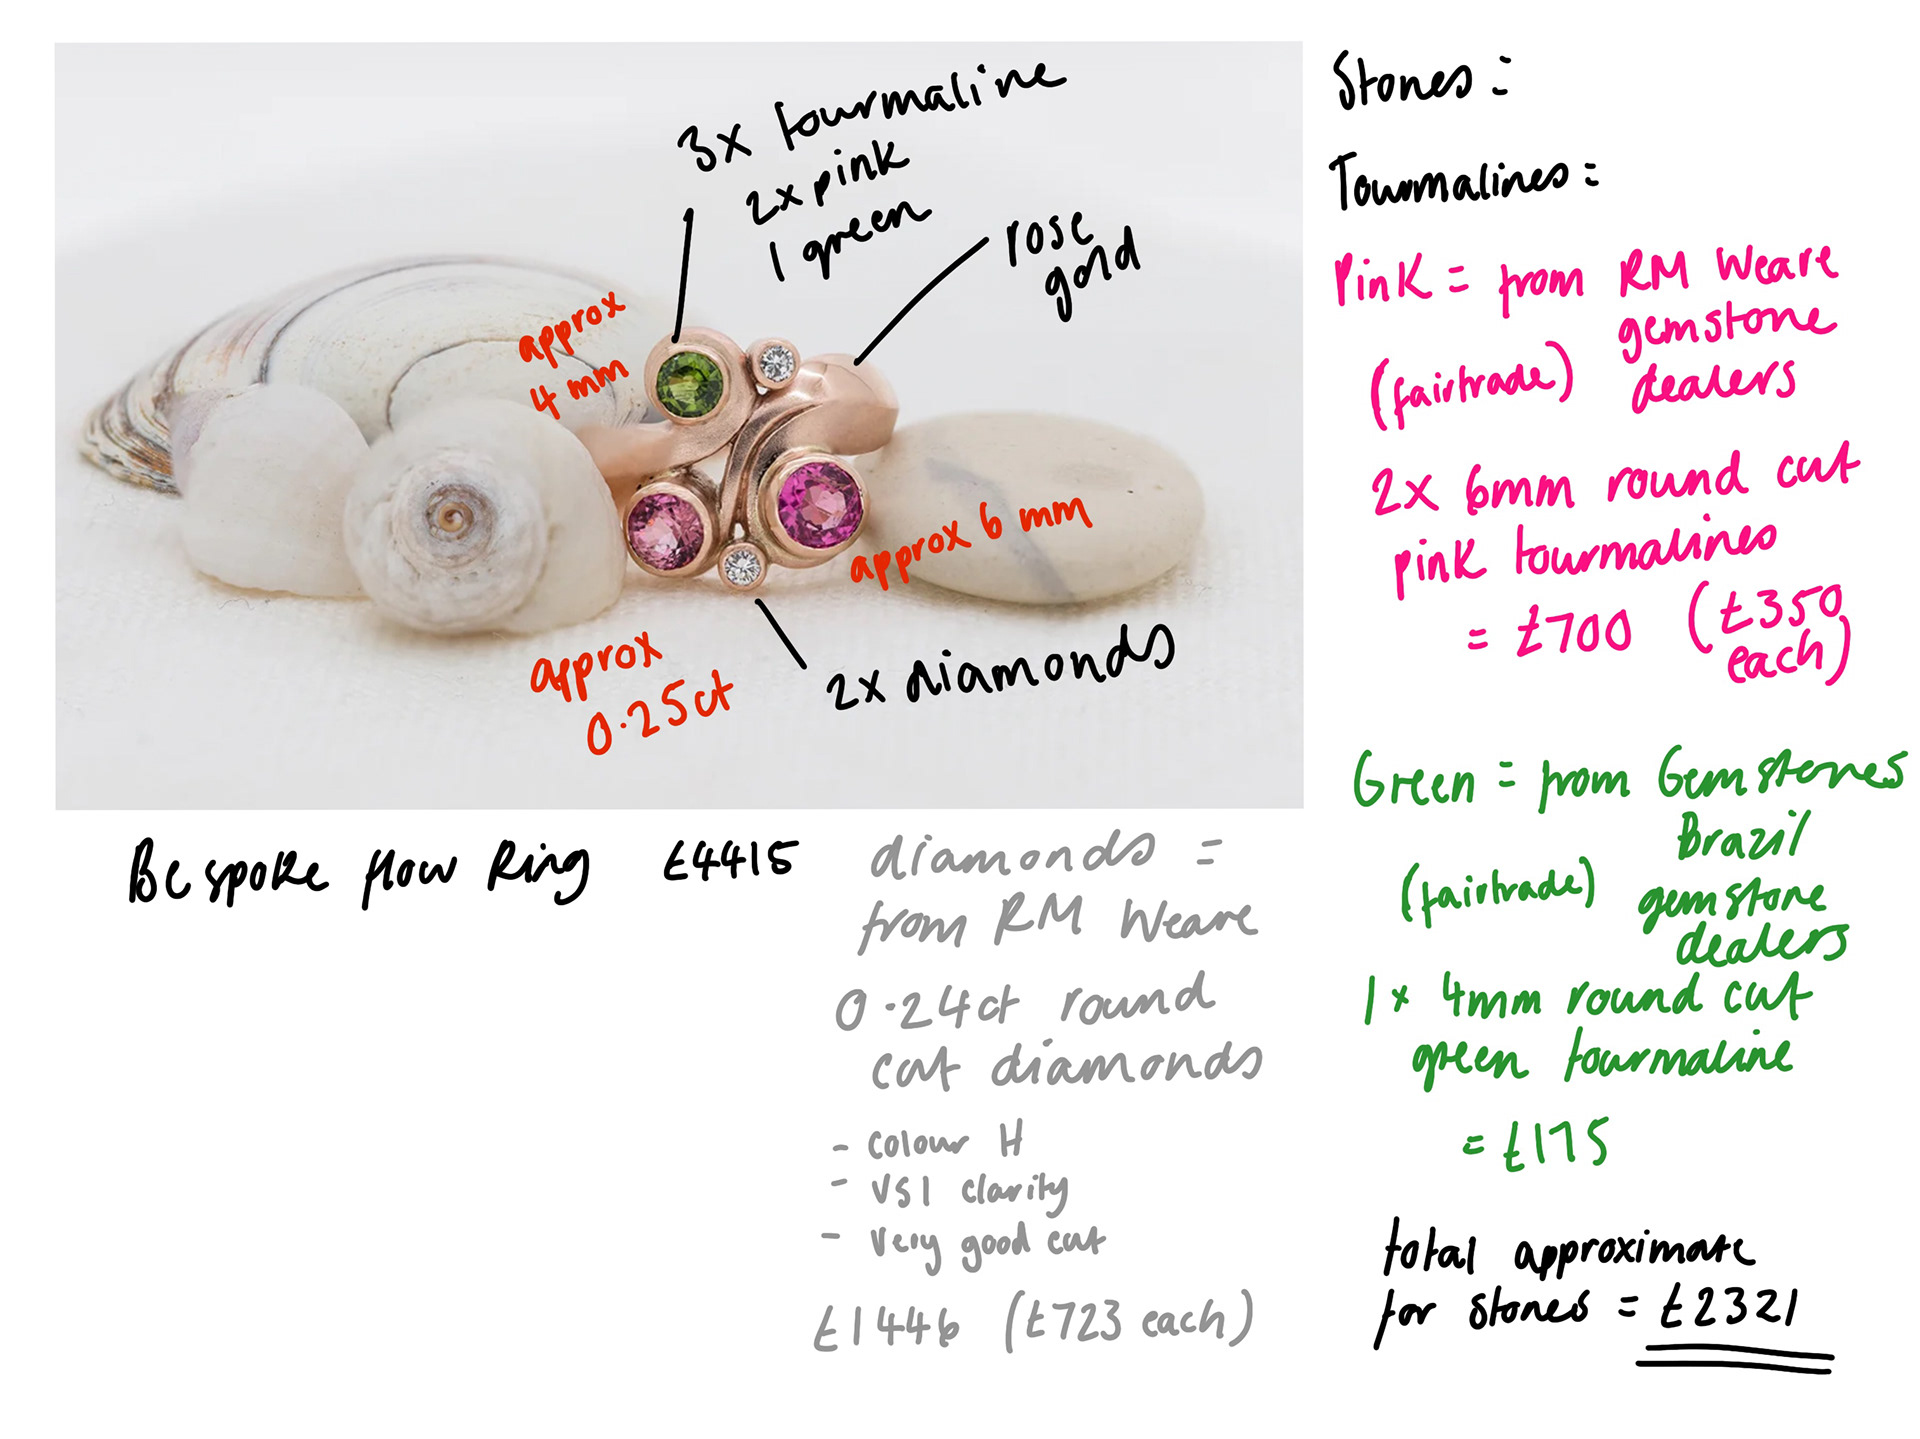 3x tourmaline
2x pink
1 green
rose
gold
approx
4 mm
approx 6 mm
approx
0.25ct
2x diamonds
Bespoke flow Ring £4415
diamonds =
from RM Weare
0.24ct round
cut diamonds
- colour H
- VS1 clarity
- very good cut
£1446 (£723 each)
Stones =
Tourmalines =
Pink = from RM Weare
gemstone
(fairtrade) dealers
2x 6mm round cut
pink tourmalines
= £700 (£350
each)
Green = from Gemstones
Brazil
(fairtrade) gemstone
dealers
1x 4mm round cut
green tourmaline
= £175
total approximate
for stones = £2321